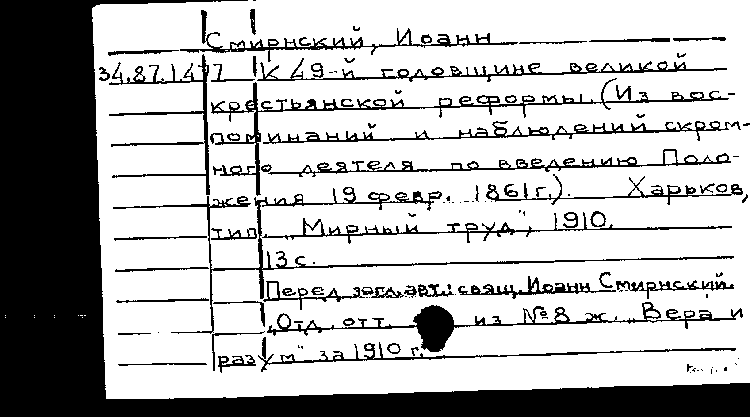 Смирнский, Иоанн
34.87.1477 К 49-й годовщине великой
крестьянской реформы. (Из вос-
поминаний и наблюдений скром-
ного деятеля по введению Поло-
жения 19 февр. 1861 г.). Харьков,
тип. „Мирный труд", 1910.
13 с.
Перед загл. авт.: свящ. Иоанн Смирнский.
„Отд. отт. из №8 ж. „Вера и
разум" за 1910 г.